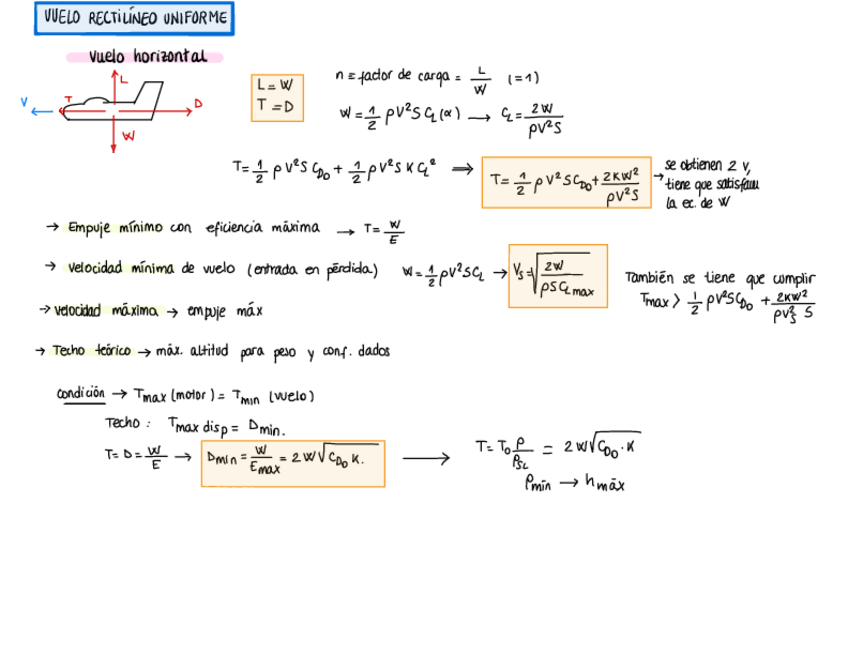 VUELO RECTILÍNEO UNIFORME
Vuelo horizontal
L
V
T
D
W
L = W
T = D
n ≡ factor de carga = L/W (=1)
W = 1/2 ρV²S C_L(α) → C_L = 2W/ρV²S
T = 1/2 ρV²S C_D₀ + 1/2 ρV²S K C_L² ⇒ T = 1/2 ρV²S C_D₀ + 2KW²/ρV²S → se obtienen 2 V,
tiene que satisfacer
la ec. de W
→ Empuje mínimo con eficiencia máxima → T = W/E
→ Velocidad mínima de vuelo (entrada en pérdida) W = 1/2 ρV²S C_L → V_s = √(2W/ρS C_L max)
También se tiene que cumplir
T_max > 1/2 ρV²S C_D₀ + 2KW²/ρV_s² S
→ Velocidad máxima → empuje máx
→ Techo teórico → máx. altitud para peso y conf. dados
condición → T_max (motor) = T_min (vuelo)
Techo : T_max disp = D_min.
T = D = W/E → D_mín = W/E_max = 2W√(C_D₀ K). → T = T₀ ρ/ρ_SL = 2W√(C_D₀ · K)
ρ_mín → h_máx